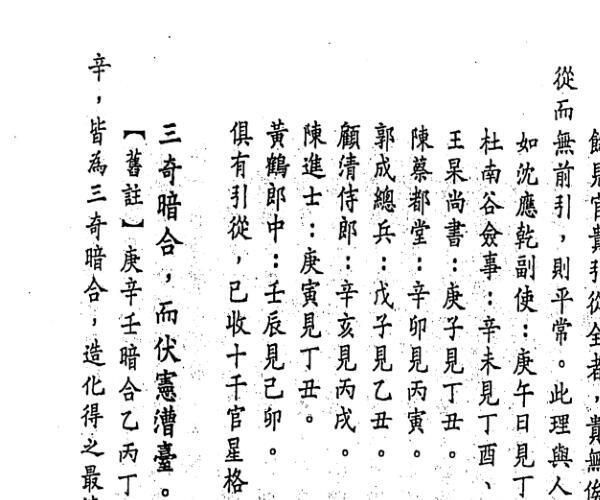 餘見官貴引從全者，貴無
從而無前引，則平常。此理與人
如沈應乾副使：庚午日見丁
杜南谷僉事：辛未見丁酉、
王杲尚書：庚子見丁丑。
陳蔡都堂：辛卯見丙寅。
郭成總兵：戊子見乙丑。
顧清侍郎：辛亥見丙戌。
陳進士：庚寅見丁丑。
黃鶴郎中：壬辰見己卯。
俱有引從，已收十干官星格
三奇暗合，而伏憲漕臺。
【舊註】庚辛壬暗合乙丙丁
辛，皆為三奇暗合，造化得之最